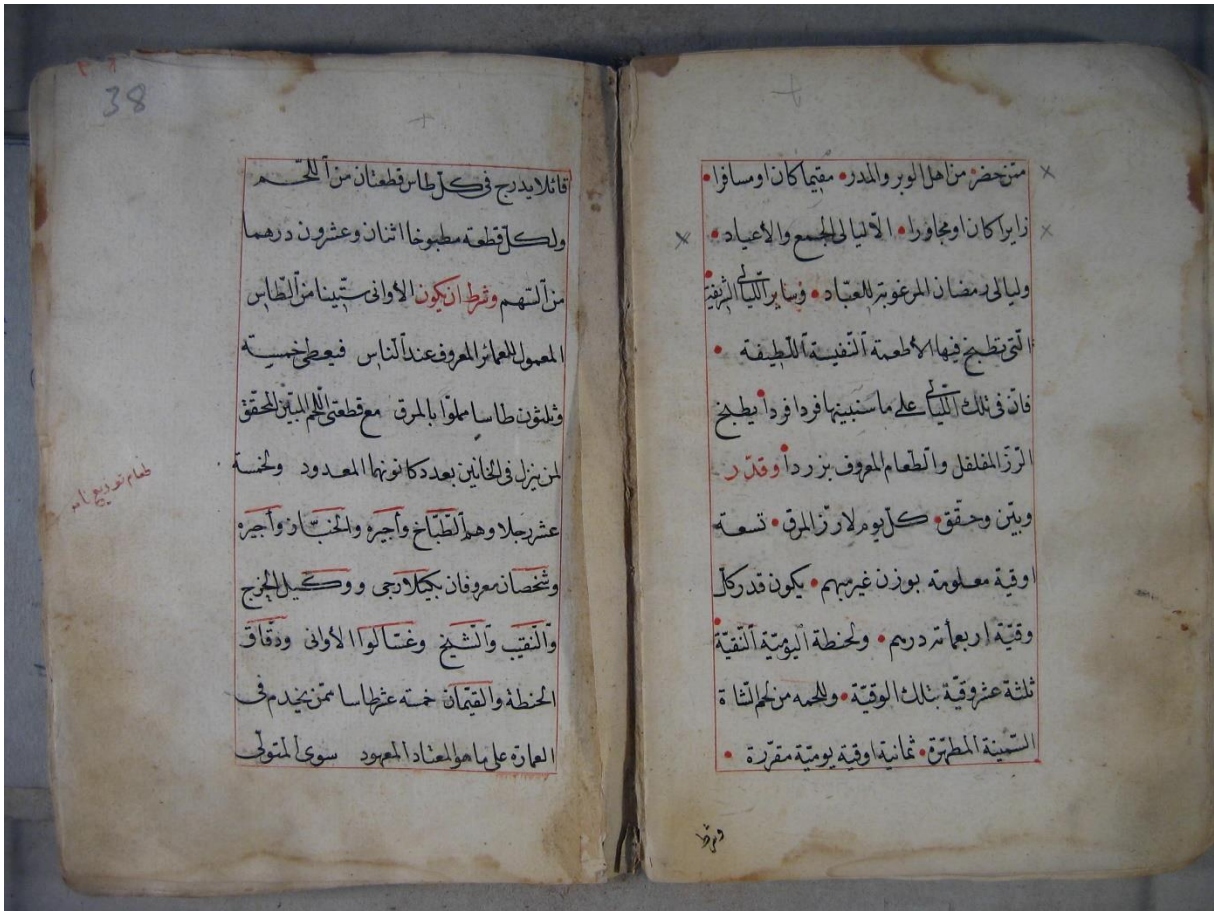 ممّن حضر من اهل الوبر والمدر مقيما كان او مسافرا
زايرا كان او مجاورا الّا ليالى الجمع والأعياد
وليالى رمضان المرغوبة للعبّاد وساير اللّيالى الشريفة
الّتى يطبخ فيها الأطعمة النّفيسة اللّطيفة
فانّ فى تلك اللّيالى على ما سنبيّنها فردا فردا يطبخ
الرّزّ المفلفل والطّعام المعروف بزردا وقدّر
وبيّن وحقّق كلّ يوم لارزّ المرق تسعة
اوقية معلومة بوزن غير مبهم يكون قدر كلّ
وقيّة اربعمائة درهم ولحنطة اليوميّة النّقيّة
ثلثة عشر وقيّة بتلك الوقيّة وللحمه من لحم الشاة
السّمينة المطهّرة ثمانية اوقية يوميّة مقرّرة
وشرط
38
قائلا يدرج فى كلّ طاس قطعتان من اللّحم
ولكلّ قطعة مطبوخا اثنان وعشرون درهما
من التهم وشرط ان يكون الأوانى ستّينا من الطّاس
المعمول للعمائر المعروف عند النّاس فيعطى خمسة
وثلثون طاسا مملوّا بالمرق مع قطعتى اللّحم المبيّن المحقّق
لمن ينزل فى الخانين بعدد كانونهما المعدود ولخمسة
عشر رجلا وهم الطّبّاخ وأجيره والخبّاز وأجيره
وشخصان معروفان بكيلارجى ووكيل الخرج
والنّقيب والشّيخ وغسّالوا الأوانى ودقّاق
الحنطة والقيّمان خمسة عشر طاسا ممّن يخدم فى
العمارة على ما هو المعتاد المعهود سوى المتولّى
طعام توديع